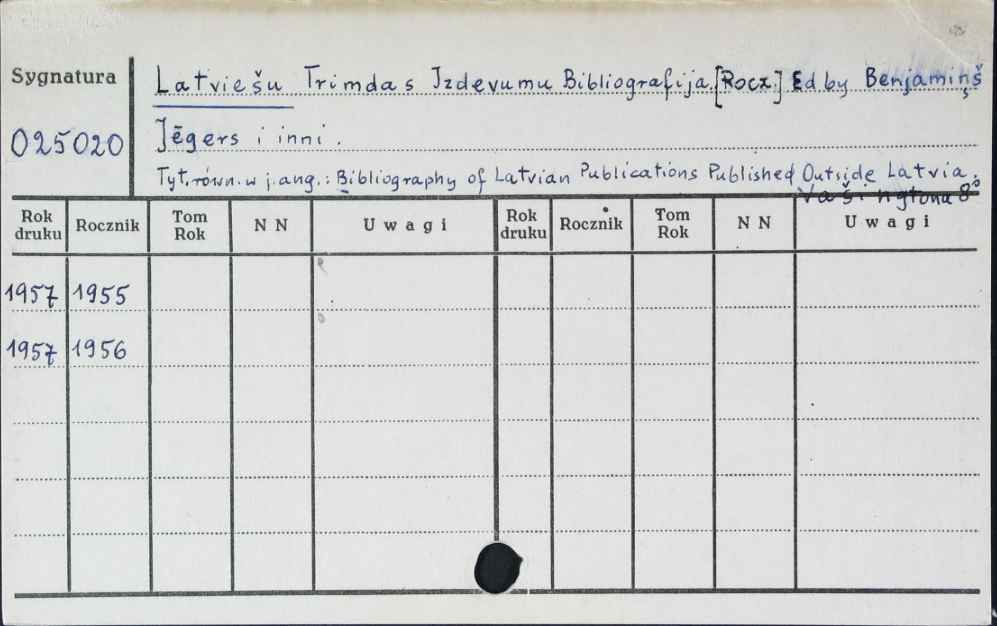 Sygnatura
025020
Latviešu Trimdas Izdevumu Bibliografija. [Rocz.] Ed by Benjamiņš
Jēgers i inni.
Tyt. równ. w j. ang.: Bibliography of Latvian Publications Published Outside Latvia.
Vašingtona 8°
Rok druku Rocznik Tom Rok N N Uwagi Rok druku Rocznik Tom Rok N N Uwagi
1957 1955
1957 1956